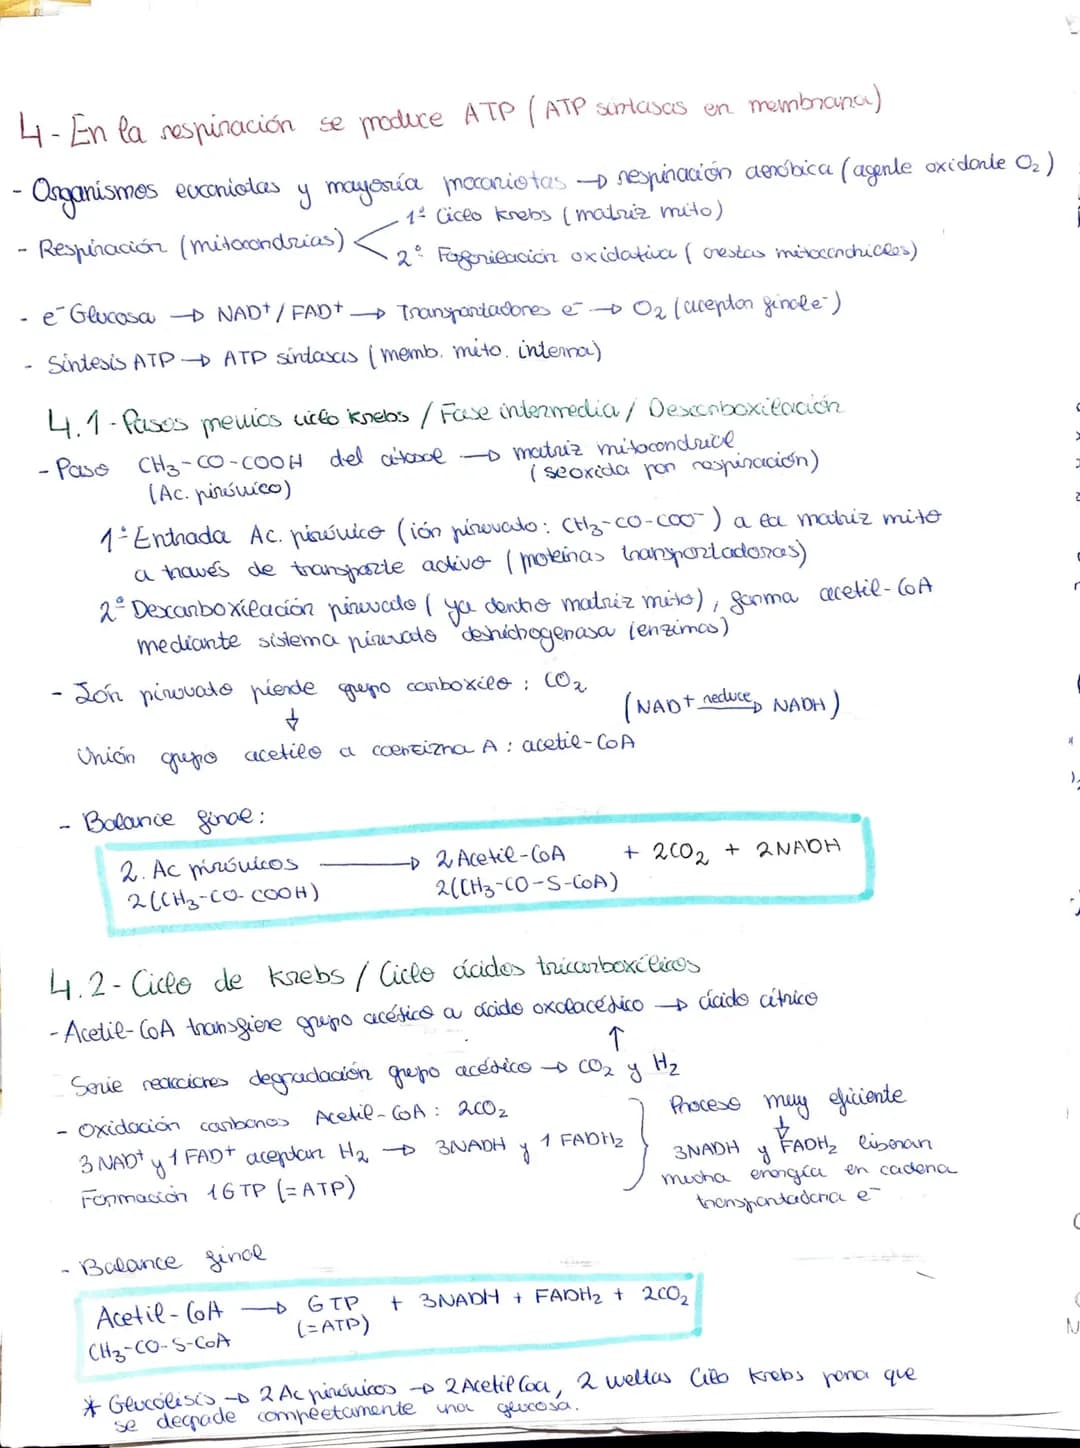 4- En la respiración se produce ATP (ATP sintasas en membrana)
- Organismos eucariotas y mayoría procariotas → respiración aeróbica (agente oxidante O₂)
- Respiración (mitocondrias)
1º Ciclo Krebs (matriz mito)
2º Fosforilación oxidativa (crestas mitocondriales)
- e⁻ Glucosa → NAD⁺/FAD⁺ → Transportadores e⁻ → O₂ (aceptor final e⁻)
- Síntesis ATP → ATP sintasas (memb. mito. interna)
4.1- Pasos previos ciclo Krebs / Fase intermedia / Descarboxilación
- Paso CH₃-CO-COOH del citosol → matriz mitocondrial
(Ac. pirúvico) (se oxida por respiración)
1º Entrada Ac. pirúvico (ión piruvato: CH₃-CO-COO⁻) a la matriz mito
a través de transporte activo (proteínas transportadoras)
2º Descarboxilación piruvato (ya dentro matriz mito), forma acetil-CoA
mediante sistema piruvato deshidrogenasa (enzimas)
- Ión piruvato pierde grupo carboxilo: CO₂
↓ (NAD⁺ reduce→ NADH)
Unión grupo acetilo a coenzima A: acetil-CoA
- Balance final:
2. Ac pirúvicos → 2 Acetil-CoA + 2CO₂ + 2NADH
2(CH₃-CO-COOH) 2(CH₃-CO-S-CoA)
4.2- Ciclo de Krebs / Ciclo ácidos tricarboxílicos
- Acetil-CoA transfiere grupo acético a ácido oxalacético → ácido cítrico
↑
Serie reacciones degradación grupo acético → CO₂ y H₂
- Oxidación carbonos Acetil-CoA: 2CO₂
3 NAD⁺ y 1 FAD⁺ aceptan H₂ → 3NADH y 1 FADH₂
Formación 1GTP (=ATP)
Proceso muy eficiente
↓
3NADH y FADH₂ liberan
mucha energía en cadena
transportadora e⁻
- Balance final
Acetil-CoA → GTP + 3NADH + FADH₂ + 2CO₂
CH₃-CO-S-CoA (=ATP)
* Glucólisis → 2 Ac pirúvicos → 2 Acetil Coa, 2 vueltas Ciclo Krebs para que
se degrade completamente una glucosa.